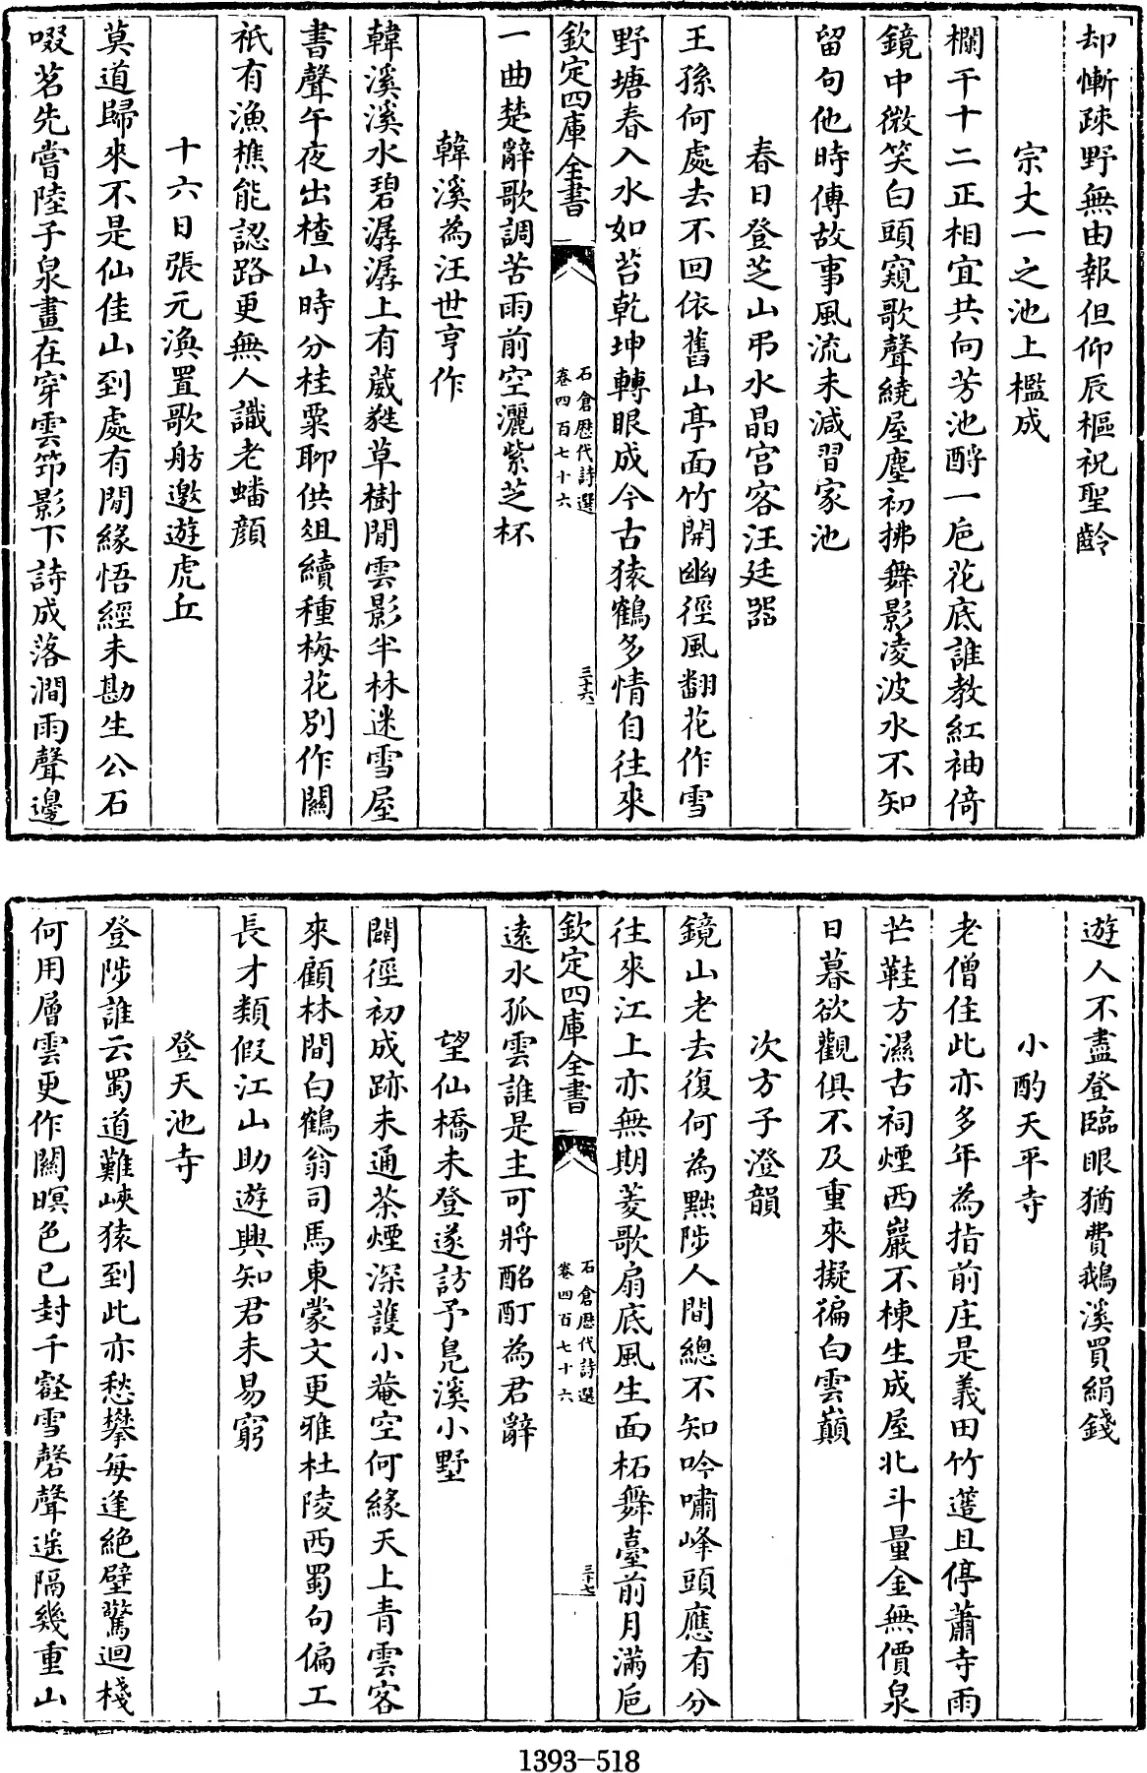 却慚疎野無由報但仰辰樞祝聖齡
宗丈一之池上檻成
欄干十二正相宜共向芳池酹一巵花底誰教紅袖倚
鏡中微笑白頭窺歌聲繞屋塵初拂舞影凌波水不知
留句他時傳故事風流未減習家池
春日登芝山弔水晶宫客汪廷器
王孫何處去不回依舊山亭面竹開幽徑風翻花作雪
野塘春入水如苔乾坤轉眼成今古猿鶴多情自往來
欽定四庫全書
石倉歷代詩選
卷四百七十六
三十六
一曲楚辭歌調苦雨前空灑紫芝杯
韓溪為汪世亨作
韓溪溪水碧潺潺上有葳蕤草樹閒雲影半林迷雪屋
書聲午夜出楂山時分桂粟聊供俎續種梅花別作關
祇有漁樵能認路更無人識老蟠顔
十六日張元渙置歌舫邀遊虎丘
莫道歸來不是仙佳山到處有閒緣悟經未勘生公石
啜茗先嘗陸子泉畫在穿雲笻影下詩成落澗雨聲邊
遊人不盡登臨眼猶費鵝溪買絹錢
小酌天平寺
老僧住此亦多年為指前庄是義田竹蹮且停蕭寺雨
芒鞋方濕古祠煙西巖不棟生成屋北斗量金無價泉
日暮欲觀俱不及重來擬徧白雲巔
次方子澄韻
鏡山老去復何為黜陟人間總不知吟嘯峰頭應有分
往來江上亦無期菱歌扇底風生面柘舞臺前月滿巵
欽定四庫全書
石倉歷代詩選
卷四百七十六
三十七
遠水孤雲誰是主可將酩酊為君辭
望仙橋未登遂訪予鳧溪小墅
闢徑初成跡未通茶煙深護小菴空何緣天上青雲客
來顧林間白鶴翁司馬東蒙文更雅杜陵西蜀句偏工
長才類假江山助遊興知君未易窮
登天池寺
登陟誰云蜀道難峽猿到此亦愁攀每逢絶壁驚迴棧
何用層雲更作關暝色已封千壑雪磬聲遥隔幾重山
1393–518